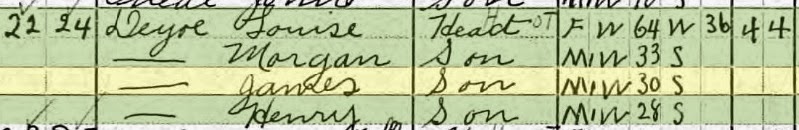 22 24 Deyoe Louise Head F W 64 W 36 4 4
— Morgan Son M W 33 S
— James Son M W 30 S
— Henry Son M W 28 S